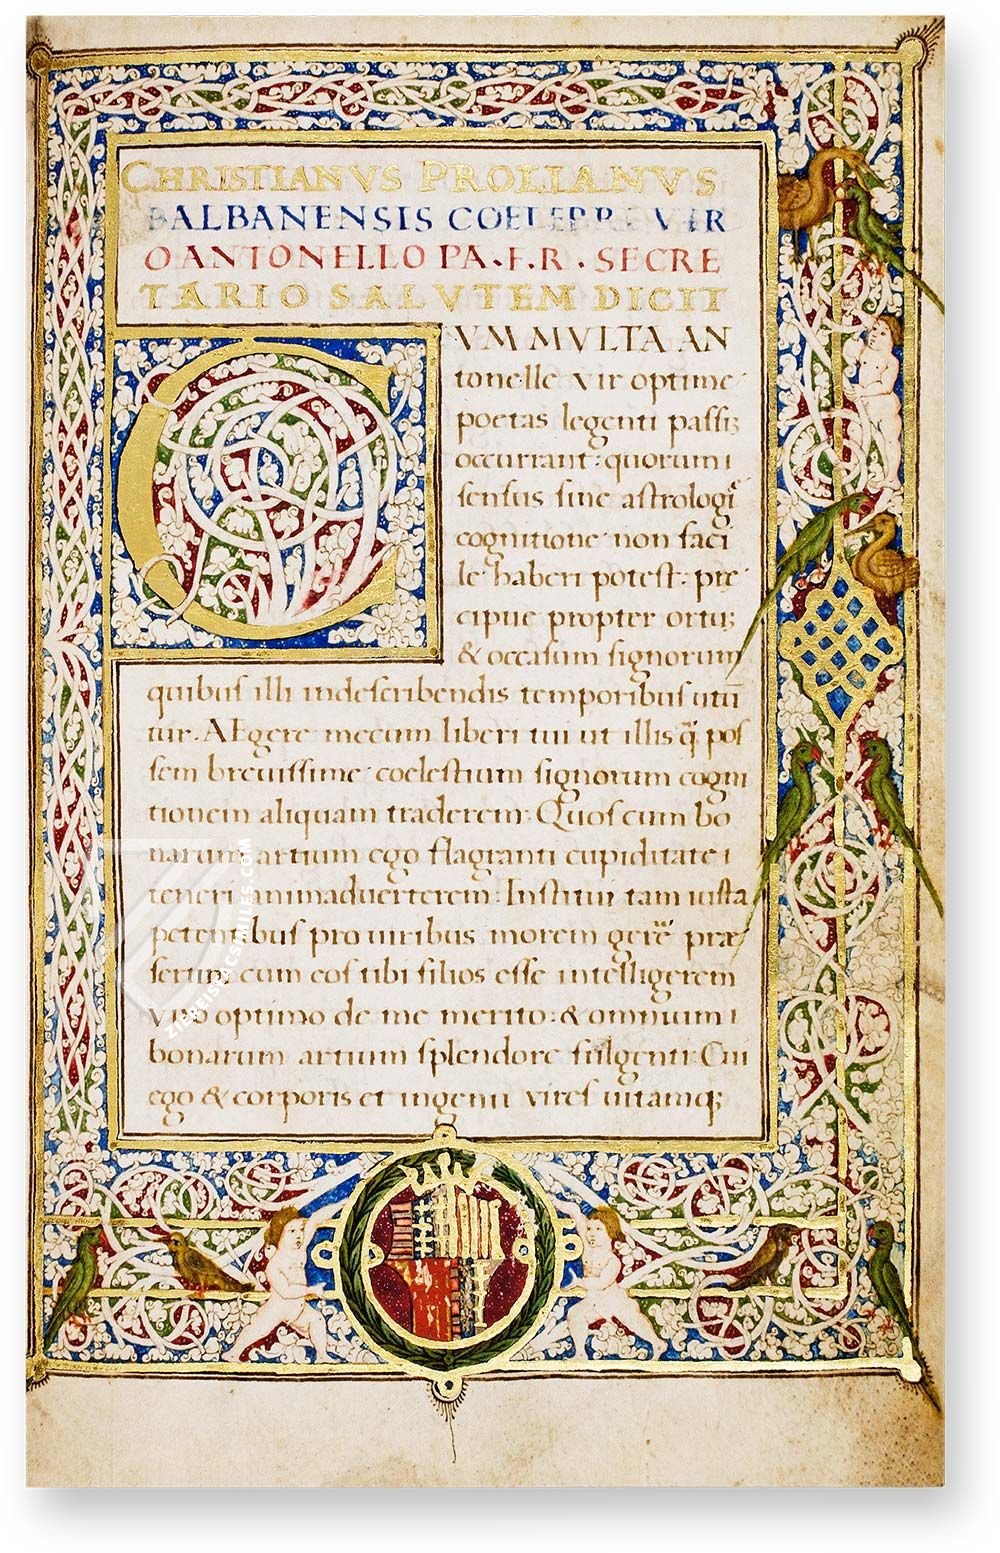 CHRISTIANVS PROLIANVS
BALBANENSIS COELEBRI VIR
O ANTONELLO PA·F·R·SECRE
TARIO SALVTEM DICIT
CVM MVLTA AN
tonelle vir optime
poetas legenti passiꝫ
occurrant: quorum
sensus sine astrologi
cognitione non faci
le haberi potest: præ
cipue propter ortuꝫ
& occasum signorum
quibus illi indescribendis temporibus utū
tur. AEgere mecum liberi tui ut illis q̄ pos
sem brevissime coelestium signorum cogni
tionem aliquam traderem: Quos cum bo
narum artium ego flagranti cupiditate i
teneri animaduerterem: Institui tam iusta
petentibus pro uiribus morem gerere præ
sertim cum eos tibi filios esse intelligerem
viro optimo de me merito: & omnium
bonarum artium splendore fulgenti: Cui
ego & corporis et ingenii vires uitamqꝫ
ZIEREIS FACSIMILES.COM